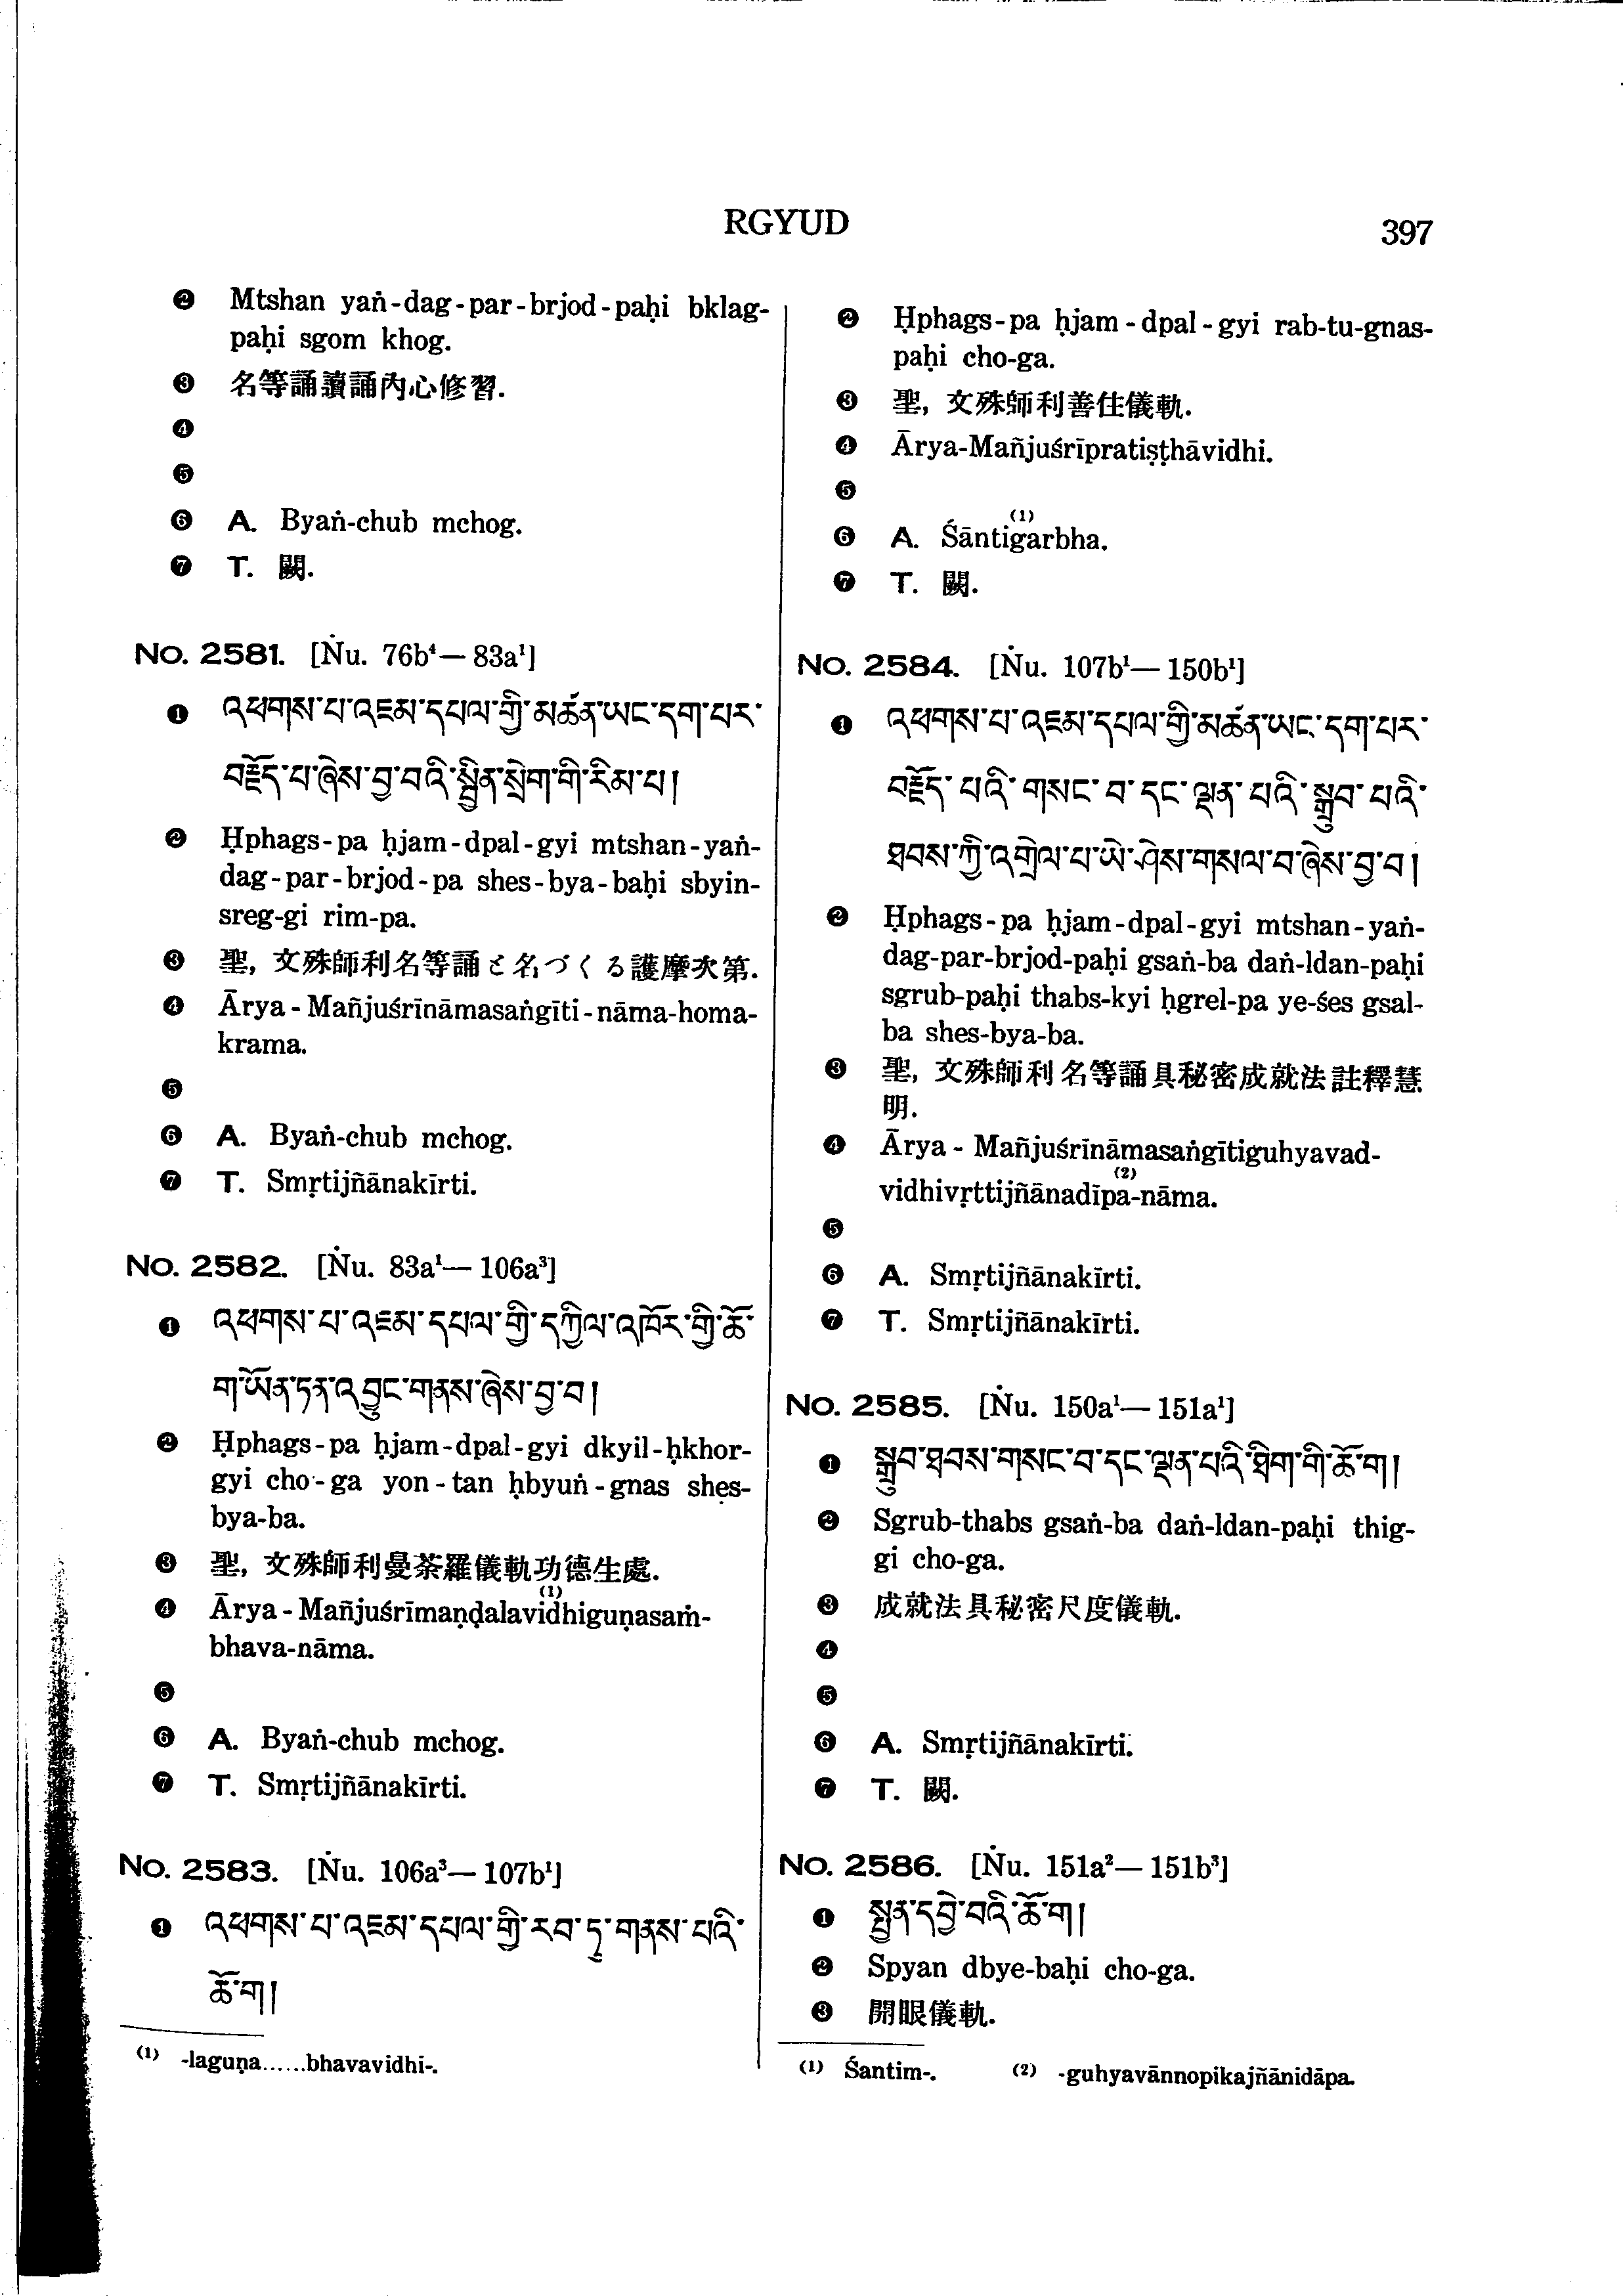 RGYUD
397
❷ Mtshan yaṅ-dag-par-brjod-paḥi bklag-
paḥi sgom khog.
❸ 名等誦讀誦內心修習.
❹
❺
❻ A. Byaṅ-chub mchog.
❼ T. 闕.
No. 2581. [Ṅu. 76b⁴—83a¹]
❶ འཕགས་པ་འཇམ་དཔལ་གྱི་མཚན་ཡང་དག་པར་
བརྗོད་པ་ཞེས་བྱ་བའི་སྦྱིན་སྲེག་གི་རིམ་པ།
❷ Ḥphags-pa ḥjam-dpal-gyi mtshan-yaṅ-
dag-par-brjod-pa shes-bya-baḥi sbyin-
sreg-gi rim-pa.
❸ 聖, 文殊師利名等誦と名づくる護摩次第.
❹ Ārya-Mañjuśrīnāmasaṅgīti-nāma-homa-
krama.
❺
❻ A. Byaṅ-chub mchog.
❼ T. Smṛtijñānakīrti.
No. 2582. [Ṅu. 83a¹—106a³]
❶ འཕགས་པ་འཇམ་དཔལ་གྱི་དཀྱིལ་འཁོར་གྱི་ཆོ་
ག་ཡོན་ཏན་འབྱུང་གནས་ཞེས་བྱ་བ།
❷ Ḥphags-pa ḥjam-dpal-gyi dkyil-ḥkhor-
gyi cho-ga yon-tan ḥbyuṅ-gnas shes-
bya-ba.
❸ 聖, 文殊師利曼荼羅儀軌功德生處.
❹ Ārya-Mañjuśrīmaṇḍalavidhi⁽¹⁾guṇasaṁ-
bhava-nāma.
❺
❻ A. Byaṅ-chub mchog.
❼ T. Smṛtijñānakīrti.
No. 2583. [Ṅu. 106a³—107b¹]
❶ འཕགས་པ་འཇམ་དཔལ་གྱི་རབ་ཏུ་གནས་པའི་
ཆོ་ག།
(1) -laguṇa......bhavavidhi-.
❷ Ḥphags-pa ḥjam-dpal-gyi rab-tu-gnas-
paḥi cho-ga.
❸ 聖, 文殊師利善住儀軌.
❹ Ārya-Mañjuśrīpratiṣṭhāvidhi.
❺
❻ A. Śāntigarbha⁽¹⁾.
❼ T. 闕.
No. 2584. [Ṅu. 107b¹—150b¹]
❶ འཕགས་པ་འཇམ་དཔལ་གྱི་མཚན་ཡང་དག་པར་
བརྗོད་པའི་གསང་བ་དང་ལྡན་པའི་སྒྲུབ་པའི་
ཐབས་ཀྱི་འགྲེལ་པ་ཡེ་ཤེས་གསལ་བ་ཞེས་བྱ་བ།
❷ Ḥphags-pa ḥjam-dpal-gyi mtshan-yaṅ-
dag-par-brjod-paḥi gsaṅ-ba daṅ-ldan-paḥi
sgrub-paḥi thabs-kyi ḥgrel-pa ye-śes gsal-
ba shes-bya-ba.
❸ 聖, 文殊師利名等誦具秘密成就法註釋慧
明.
❹ Ārya-Mañjuśrīnāmasaṅgītiguhyavad-
vidhivṛttijñānadīpa⁽²⁾-nāma.
❺
❻ A. Smṛtijñānakīrti.
❼ T. Smṛtijñānakīrti.
No. 2585. [Ṅu. 150a¹—151a¹]
❶ སྒྲུབ་ཐབས་གསང་བ་དང་ལྡན་པའི་ཐིག་གི་ཆོ་ག།
❷ Sgrub-thabs gsaṅ-ba daṅ-ldan-paḥi thig-
gi cho-ga.
❸ 成就法具秘密尺度儀軌.
❹
❺
❻ A. Smṛtijñānakīrti.
❼ T. 闕.
No. 2586. [Ṅu. 151a²—151b³]
❶ སྤྱན་དབྱེ་བའི་ཆོ་ག།
❷ Spyan dbye-baḥi cho-ga.
❸ 開眼儀軌.
(1) Śantim-. (2) -guhyavānnopikajñānidāpa.